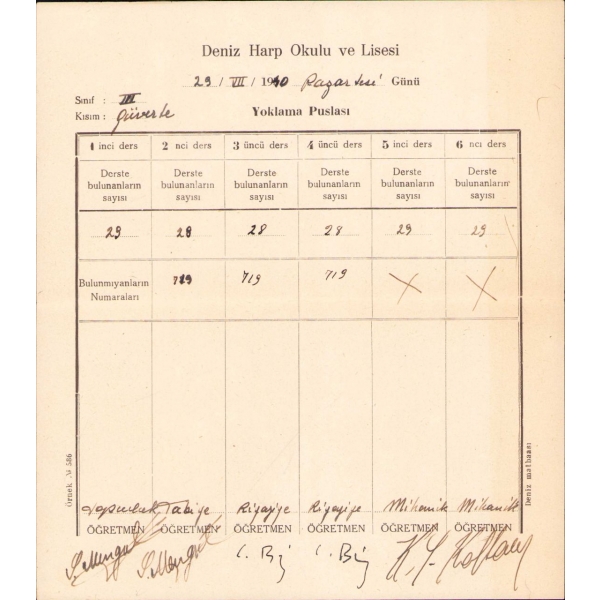 Deniz Harp Okulu ve Lisesi
29 / VII / 1940 Pazartesi Günü
Sınıf : III
Kısım : Güverte
Yoklama Puslası
1 inci ders 2 nci ders 3 üncü ders 4 üncü ders 5 inci ders 6 ncı ders
Derste bulunanların sayısı Derste bulunanların sayısı Derste bulunanların sayısı Derste bulunanların sayısı Derste bulunanların sayısı Derste bulunanların sayısı
29 28 28 28 29 29
Bulunmıyanların Numaraları 719 719 719 X X
Tabiye Riyaziye Riyaziye Mihanik Mihanik
ÖĞRETMEN ÖĞRETMEN ÖĞRETMEN ÖĞRETMEN ÖĞRETMEN ÖĞRETMEN
Örnek № 586
Deniz matbaası